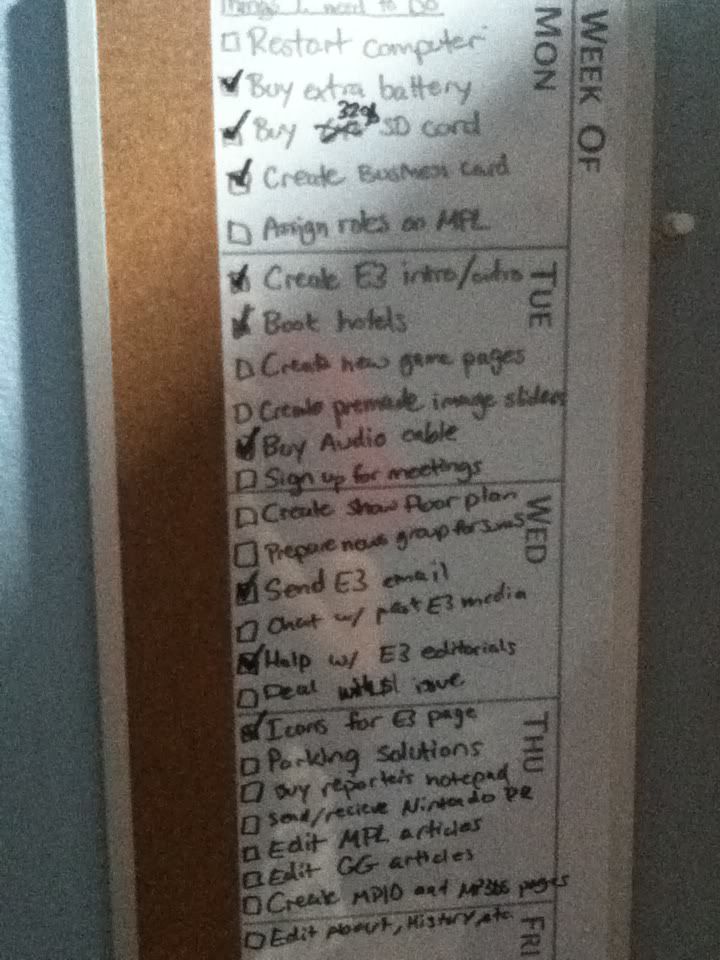 Things I need to Do
WEEK OF
MON
Restart computer
Buy extra battery
Buy 32gb SD card
Create Business card
Assign roles on MPL
TUE
Create E3 intro/outro
Book hotels
Create new game pages
Create premade image sliders
Buy Audio cable
Sign up for meetings
WED
Create show floor plan
Prepare news group for
Send E3 email
Chat w/ past E3 media
Help w/ E3 editorials
Deal issue
THU
Icons for E3 page
Parking Solutions
Buy reporter's notepad
Send/recieve Nintendo PR
Edit MPL articles
Edit GG articles
Create MP10 and pages
FRI
Edit About, History, etc.